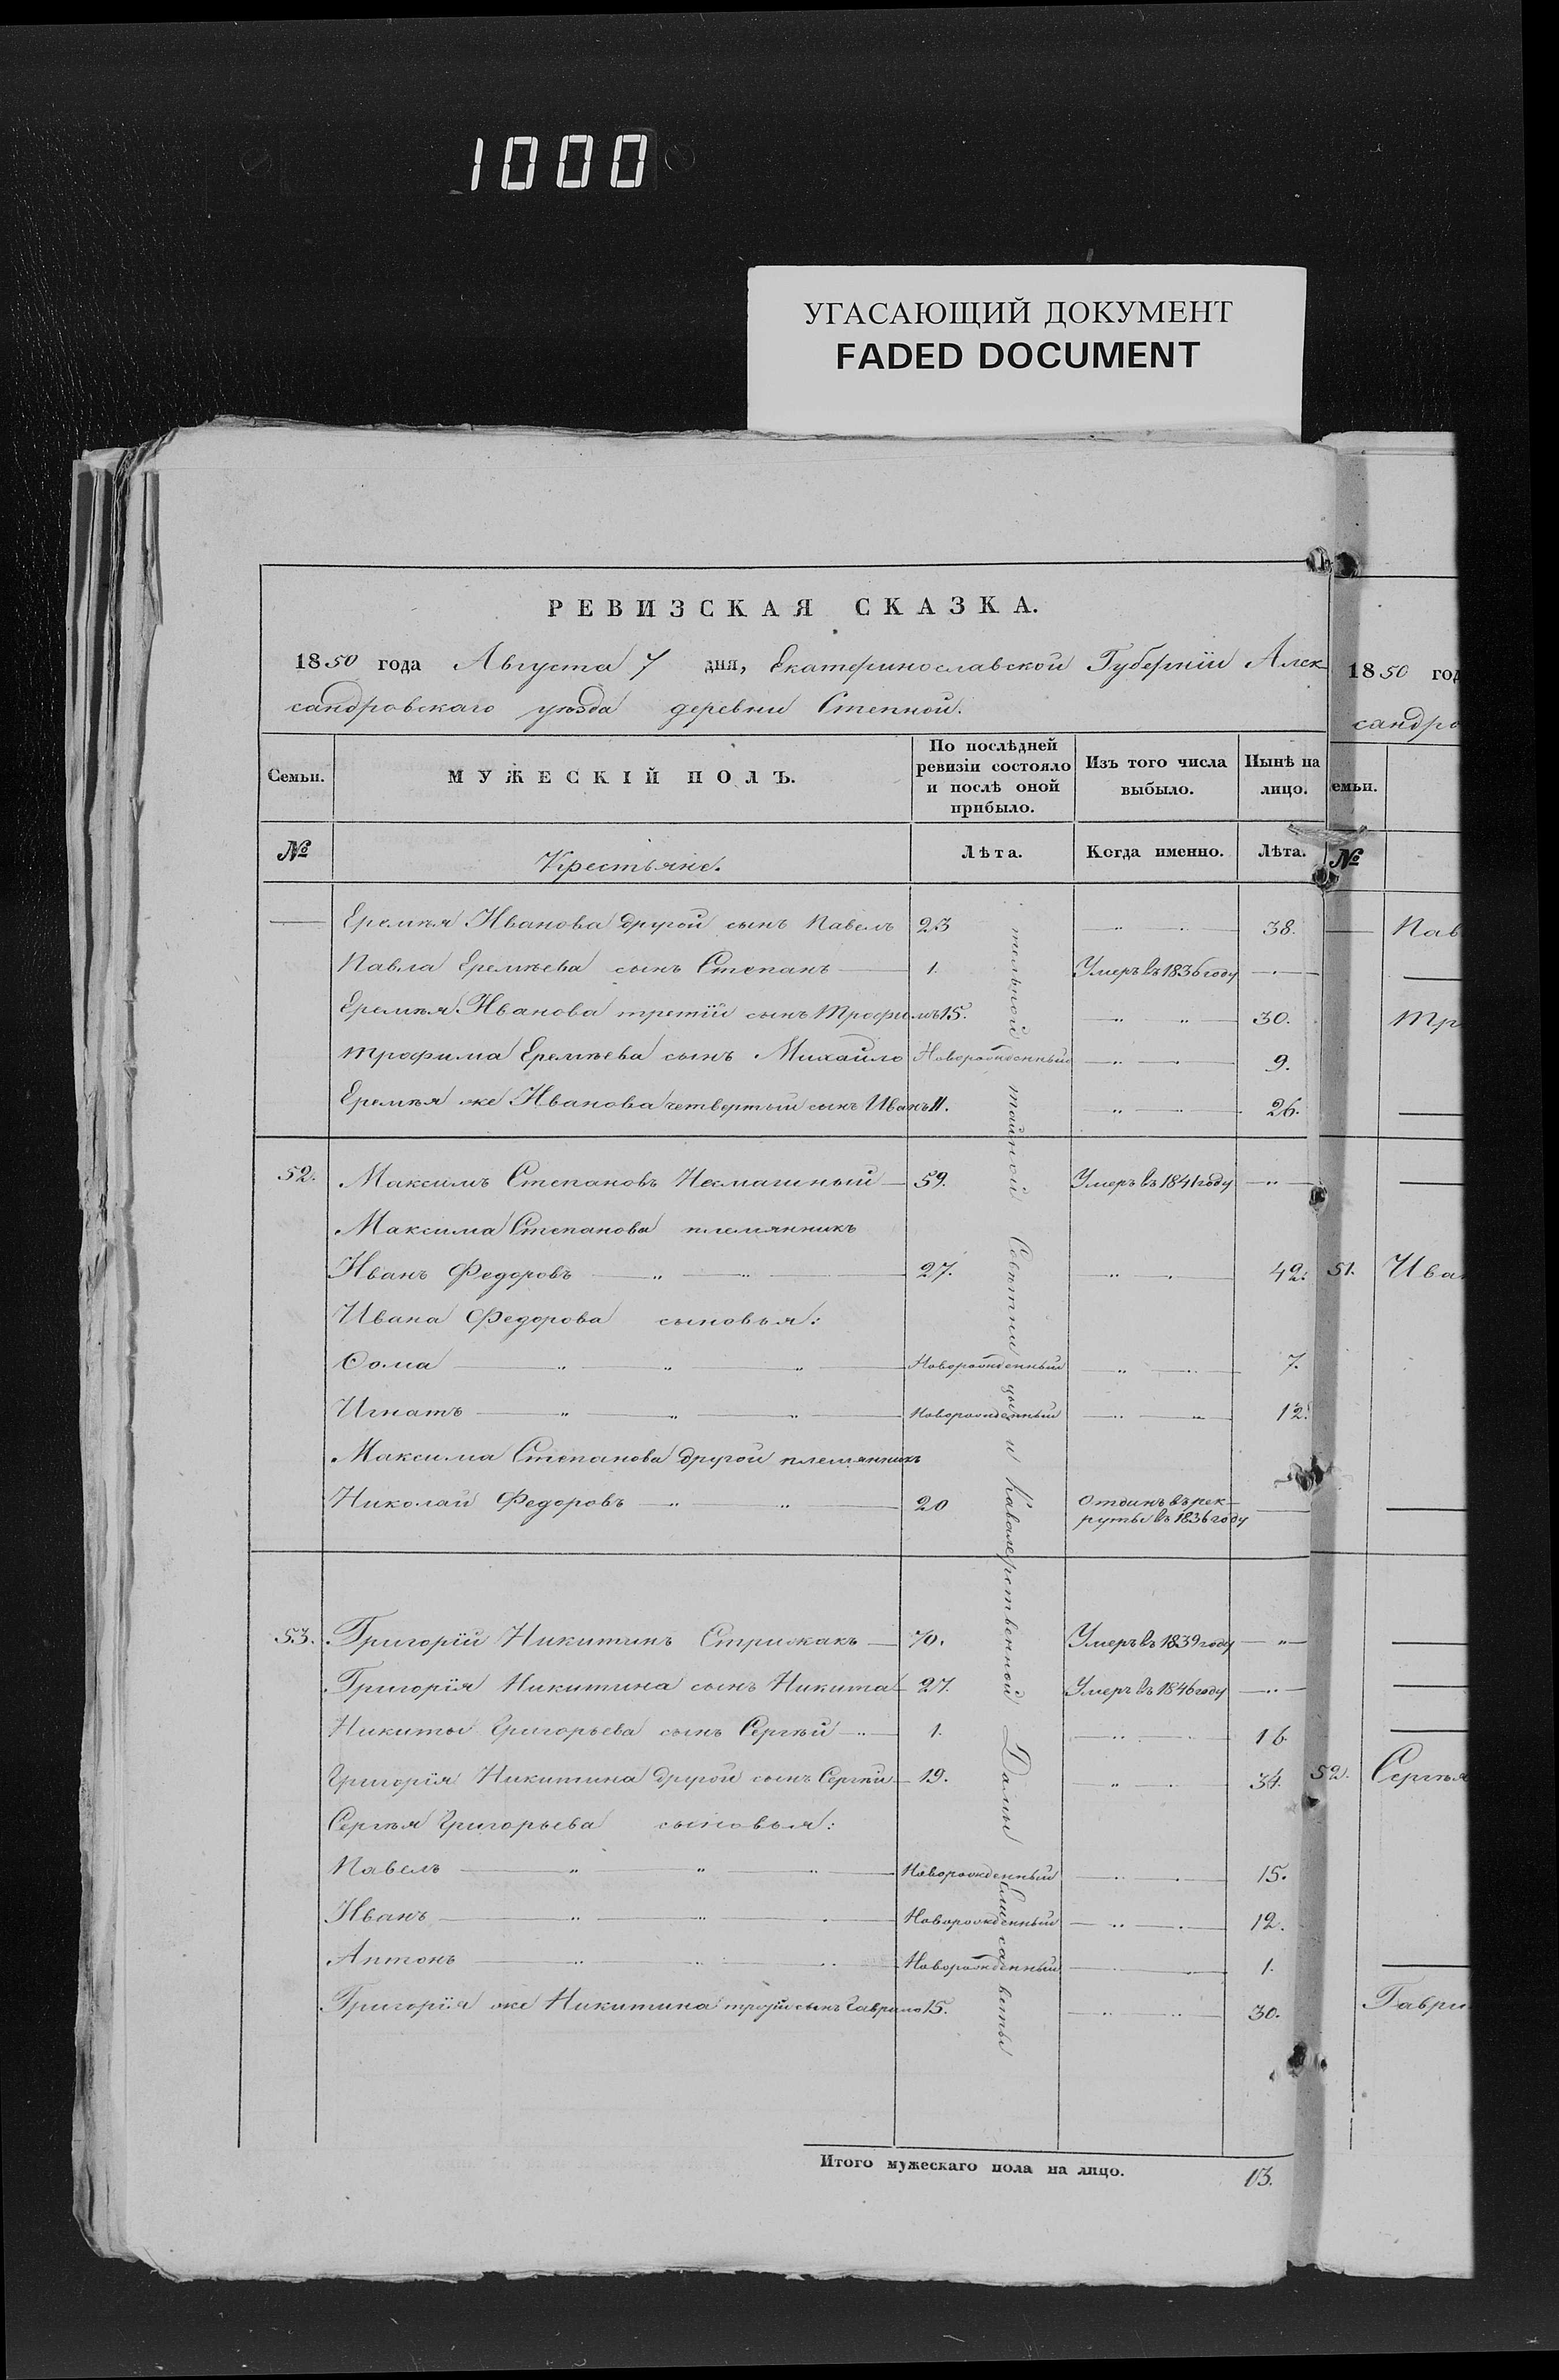 1000
УГАСАЮЩИЙ ДОКУМЕНТ
FADED DOCUMENT
РЕВИЗСКАЯ СКАЗКА.
1850 года Августа 7 дня, Екатеринославской Губернiи Алек
сандровскаго уѣзда деревни Степной.
Семьи. МУЖЕСКІЙ ПОЛЪ. По послѣдней ревизіи состояло и послѣ оной прибыло. Изъ того числа выбыло. Нынѣ на лицо.
№ Крестьяне. Лѣта. Когда именно. Лѣта.
Еремѣя Иванова другой сынъ Павелъ 23 38.
Павла Еремѣева сынъ Степанъ 1. Умеръ въ 1836 году
Еремѣя Иванова третiй сынъ Трофимъ 15. 30.
Трофима Еремѣева сынъ Михайло Новорожденный 9.
Еремѣя же Иванова четвертый сынъ Иванъ 11. 26.
52. Максимъ Степановъ 59. Умеръ въ 1841 году
Максима Степанова племянникъ
Иванъ Федоровъ 27. 42.
Ивана Федорова сыновья:
Ѳома Новорожденный 7.
Игнатъ Новорожденный 12.
Максима Степанова другой племянникъ
Николай Федоровъ 20 Отданъ въ рек-
руты въ 1836 году
53. Григорiй Никитинъ Стрижакъ 70. Умеръ въ 1839 году
Григорiя Никитина сынъ Никита 27. Умеръ въ 1846 году
Никиты Григорьева сынъ Сергѣй 1. 16.
Григорiя Никитина другой сынъ Сергѣй 19. 34.
Сергѣя Григорьева сыновья:
Павелъ Новорожденный 15.
Иванъ Новорожденный 12.
Антонъ Новорожденный 1.
Григорiя же Никитина третiй сынъ Гаврило 15. 30.
Итого мужескаго пола на лицо. 13.
тельной тайной Совѣтницы и Кавалерственной Дамы Елисаветы
1850 год
сандро
емьи.
№
Пав
Тр
51. Иван
52. Сергѣя
Гаври